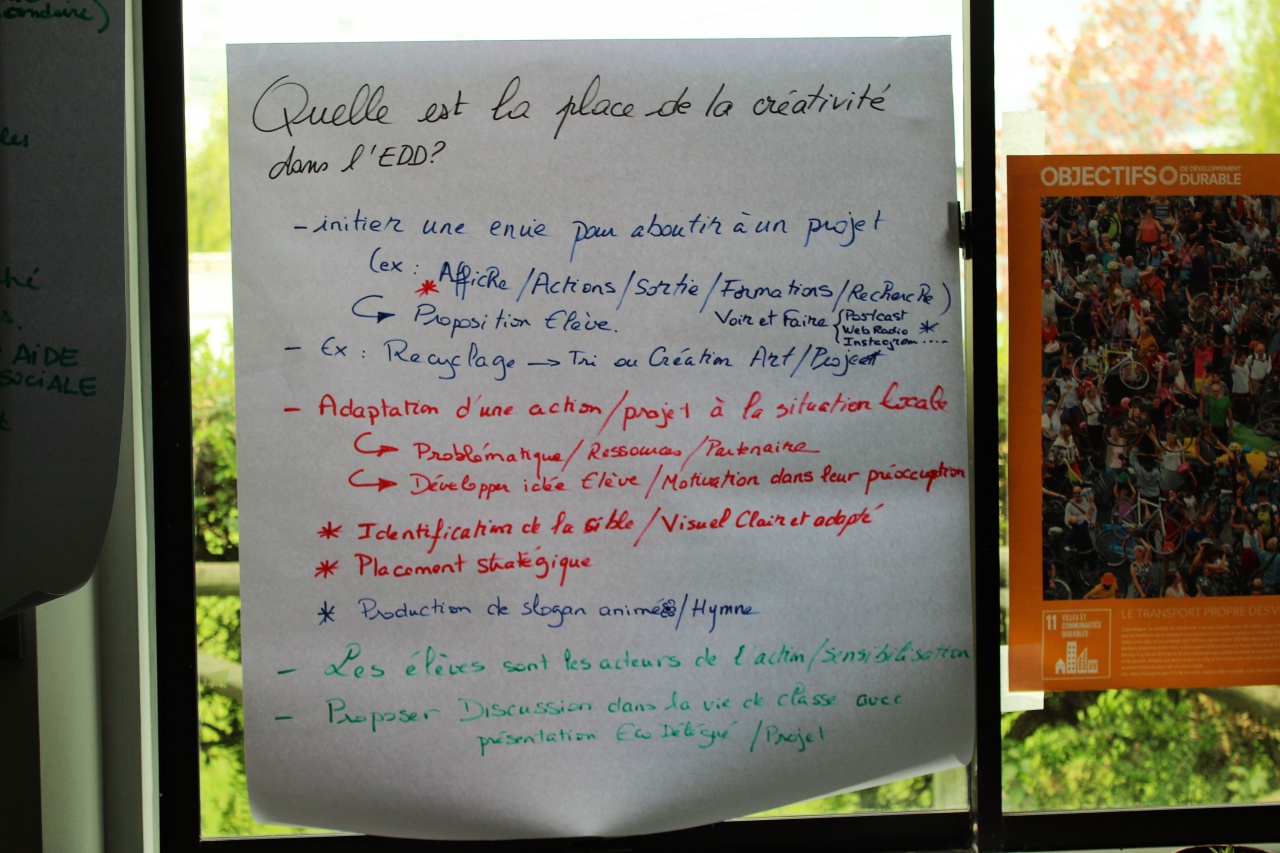 AIDE
SOCIALE
Quelle est la place de la créativité
dans l'EDD?
- initier une envie pour aboutir à un projet
(ex : Affiche / Actions / Sortie / Formations / Recherche)
* Proposition Elève.
Voir et Faire { Postcast
Web Radio *
Instagram ....
- Ex : Recyclage → Tri ou Création Art / Projet
- Adaptation d'une action / projet à la situation locale
Problématique / Ressources / Partenaire
Développer idée Elève / Motivation dans leur préoccuption
* Identification de la sible / Visuel Clair et adapté
* Placement stratégique
* Production de slogan animé / Hymne
- Les élèves sont les acteurs de l'action / Sensibilisation
- Proposer Discussion dans la vie de classe avec
présentation Eco Délégué / Projet
OBJECTIFS DE DÉVELOPPEMENT
DURABLE
11 VILLES ET
COMMUNAUTÉS
DURABLES
LE TRANSPORT PROPRE DES